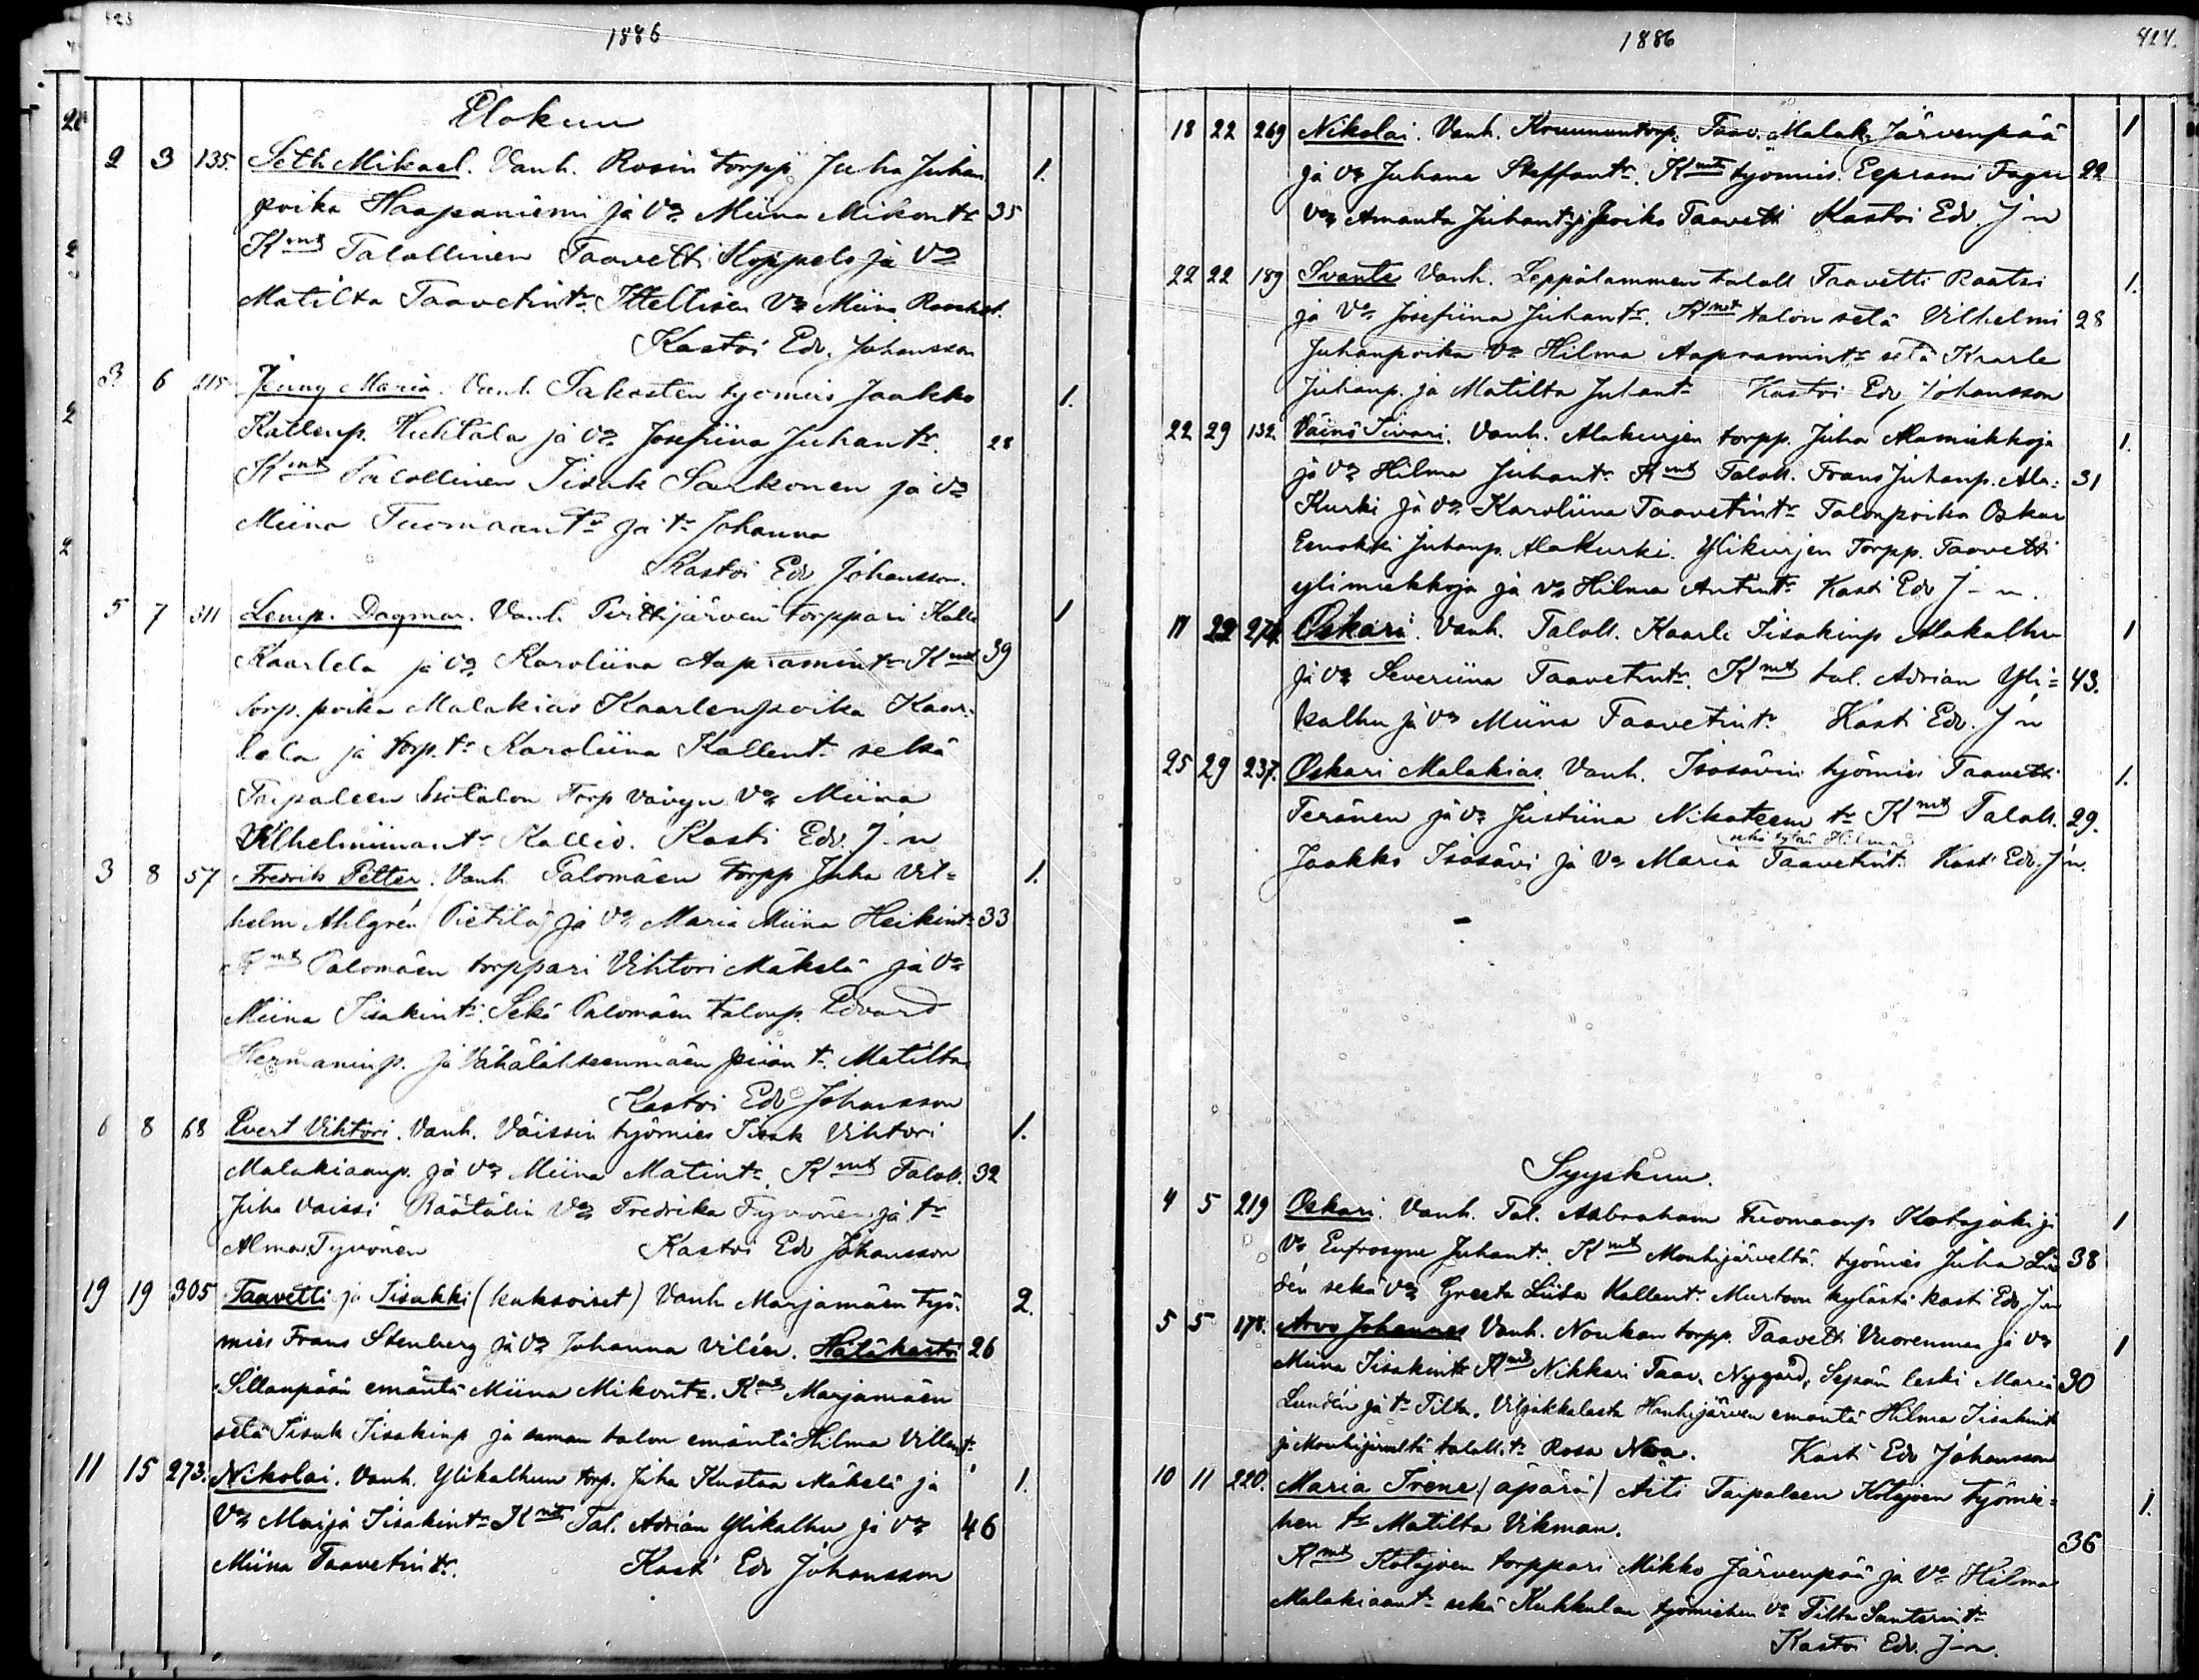 1886
Elokuu
2 3 135. Seth Mikael. Vanh. Rosin torpp Juha Juhan
poika Haapaniemi ja Vo Miina Mikontr 35 1.
Kmt Talollinen Taavetti Koppelo ja Vo
Matilta Taavetintr. Ittellisen Vo Miina
Kastoi Edv. Johansson
3 6 215 Jenny Maria. Vanh. Sakosten tyomies Jaakko 1.
Kallenp. Huhtala ja Vo Josefiina Juhantr. 28
Kmt Talollinen Iisak Sarkonen ja Vo
Miina Tuomaantr ja tr Johanna
Kastoi Edv Johansson.
5 7 311 Lemp. Dagmar. Vanh Perttijärven torppari Kalle 1
Kaarlela ja Vo Karoliina Aapramintr Kmt 39
torp. poika Malakias Kaarlenpoika Kaar-
lela ja torp. tr Karoliina Kallentr sekä
Taipaleen Isotalon Torp vävyn Vo Miina
Vilhelmiinantr Kallio. Kasti Edv. J-n
3 8 57 Fredrik Petter. Vanh. Palomäen torpp Juha Vil= 1.
helm Ahlgrén (Pietilä) ja Vo Maria Miina Heikintr 33
Kmt Palomäen torppari Vihtori Mäkelä ja Vo
Miina Iisakintr. Sekä Palomäen talonp. Edvard
Hermaninp. ja Vähälähteenmäen piian tr Matilta
Kastoi Edv Johansson
6 8 68 Evert Vihtori. Vanh. Väissin työmies Iisak Vihtori 1.
Malakiaanp. ja Vo Miina Matintr. Kmt Taloll. 32
Juha Vaissi Räätälin Vo Fredrika Tyrvönen ja tr
Alma Tyrvönen Kastoi Edv Johansson
19 19 305 Taavetti ja Iisakki (kaksoiset) Vanh Marjamäen työ- 2.
mies Frans Stenberg ja Vo Johanna Vilén. Hätäkasti 26
Sillanpään emäntä Miina Mikontr. Kmt Marjamäen
setä Iisak Iisakinp ja saman talon emäntä Hilma Villentr
11 15 273. Nikolai. Vanh. Ylikalhun torp. Juha Kustaa Mäkelä ja 1.
Vo Maija Iisakintr Kmt Tal. Adrian Ylikalhu ja Vo 46
Miina Taavetintr. Kast Edv Johansson
1886 424.
18 22 269 Nikolai. Vanh. Kruununtorp. Taav. Malak. Järvenpää 1
ja Vo Juhana Staffantr. Kmt työmies. Eeprami Fager 22
Vo Amanta Juhantr ja poika Taavetti Kastoi Edv. J-n
22 22 189 Svante Vanh. Leppälammen taloll Taavetti Raatsi 1.
ja Vo Josefiina Juhantr. Kmt talon setä Vilhelmi 28
Juhanpoika Vo Hilma Aapramintr setä Kaarle
Juhanp. ja Matilta Juhantr Kastoi Edv Johansson
22 29 132. Väinö Iivari. Vanh. Alakurjen torpp. Juha Alamiekkoja 1.
ja Vo Hilma Juhantr Kmt Taloll. Frans Juhanp. Ala- 31
Kurki ja Vo Karoliina Taavetintr Talonpoika Oskar
Eenokki Juhanp. AlaKurki. Ylikurjen Torpp. Taavetti
ylimiekkoja ja Vo Hilma Antintr Kasti Edv J-n.
17 22 274 Oskari. Vanh. Taloll. Kaarle Iisakinp Alakalhu 1
ja Vo Severiina Taavetintr. Kmt tal. Adrian Yli= 43.
kalhu ja Vo Miina Taavetintr Kasti Edv. J-n
25 29 237. Oskari Malakias. Vanh. Isosävin työmies Taavetti 1.
Teränen ja Vo Justiina Nikoteem tr Kmt Taloll. 29.
sekä tytär Hilma
Jaakko Isosävi ja Vo Maria Taavetintr. Kasti Edv. J-n.
Syyskuu.
4 5 219 Oskari. Vanh. Tal. Aabraham Tuomaanp Katajaki ja 1
Vo Eufrosyne Juhantr. Kmt Monhijärveltä työmies Juha Lin 38
dén sekä Vo Greeta Liisa Kallentr. Murtoon kylästä kasti Edv J-n
5 5 178. Arvo Johannes Vanh. Noukan torpp. Taavetti Vuorenmaa ja Vo 1
Miina Iisakintr Kmt Nikkari Taav. Nygård, Sepän leski Maria 30
Lundén ja tr Tilta, Viljakkalasta Hanhijärven emäntä Hilma Iisakintr
ja Mouhijärveltä taloll. tr Rosa Kast Edv Johansson
10 11 220. Maria Irene (äpärä) Äiti Taipaleen Kotajoen työmie= 1.
hen tr Matilta Vikman. 36
Kmt Kotajoen torppari Mikko Järvenpää ja Vo Hilma
Malakiaantr sekä Kukkulan työmiehen Vo Tilta Santerintr
Kastoi Edv. J-n.